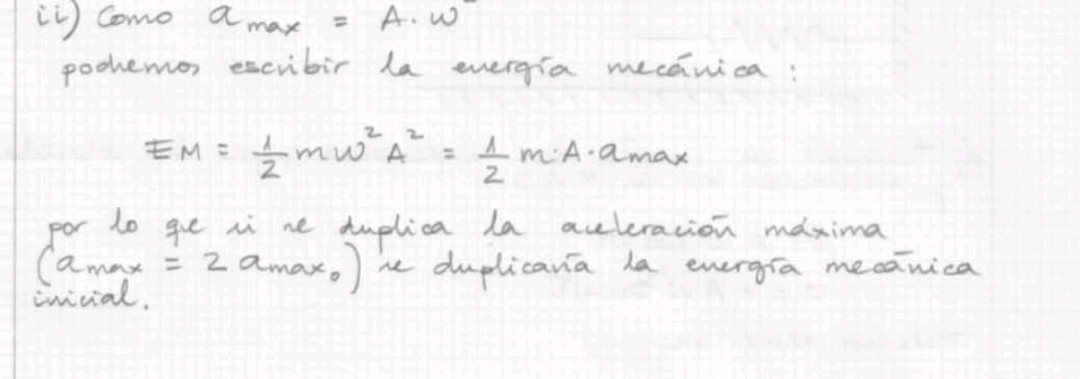 ii) Como a max = A. w²
podremos escribir la energía mecánica :
EM = 1/2 m w² A² = 1/2 m·A·a max
por lo que si se duplica la aceleración máxima
(a max = 2 a max₀) se duplicaría la energía mecánica
inicial.